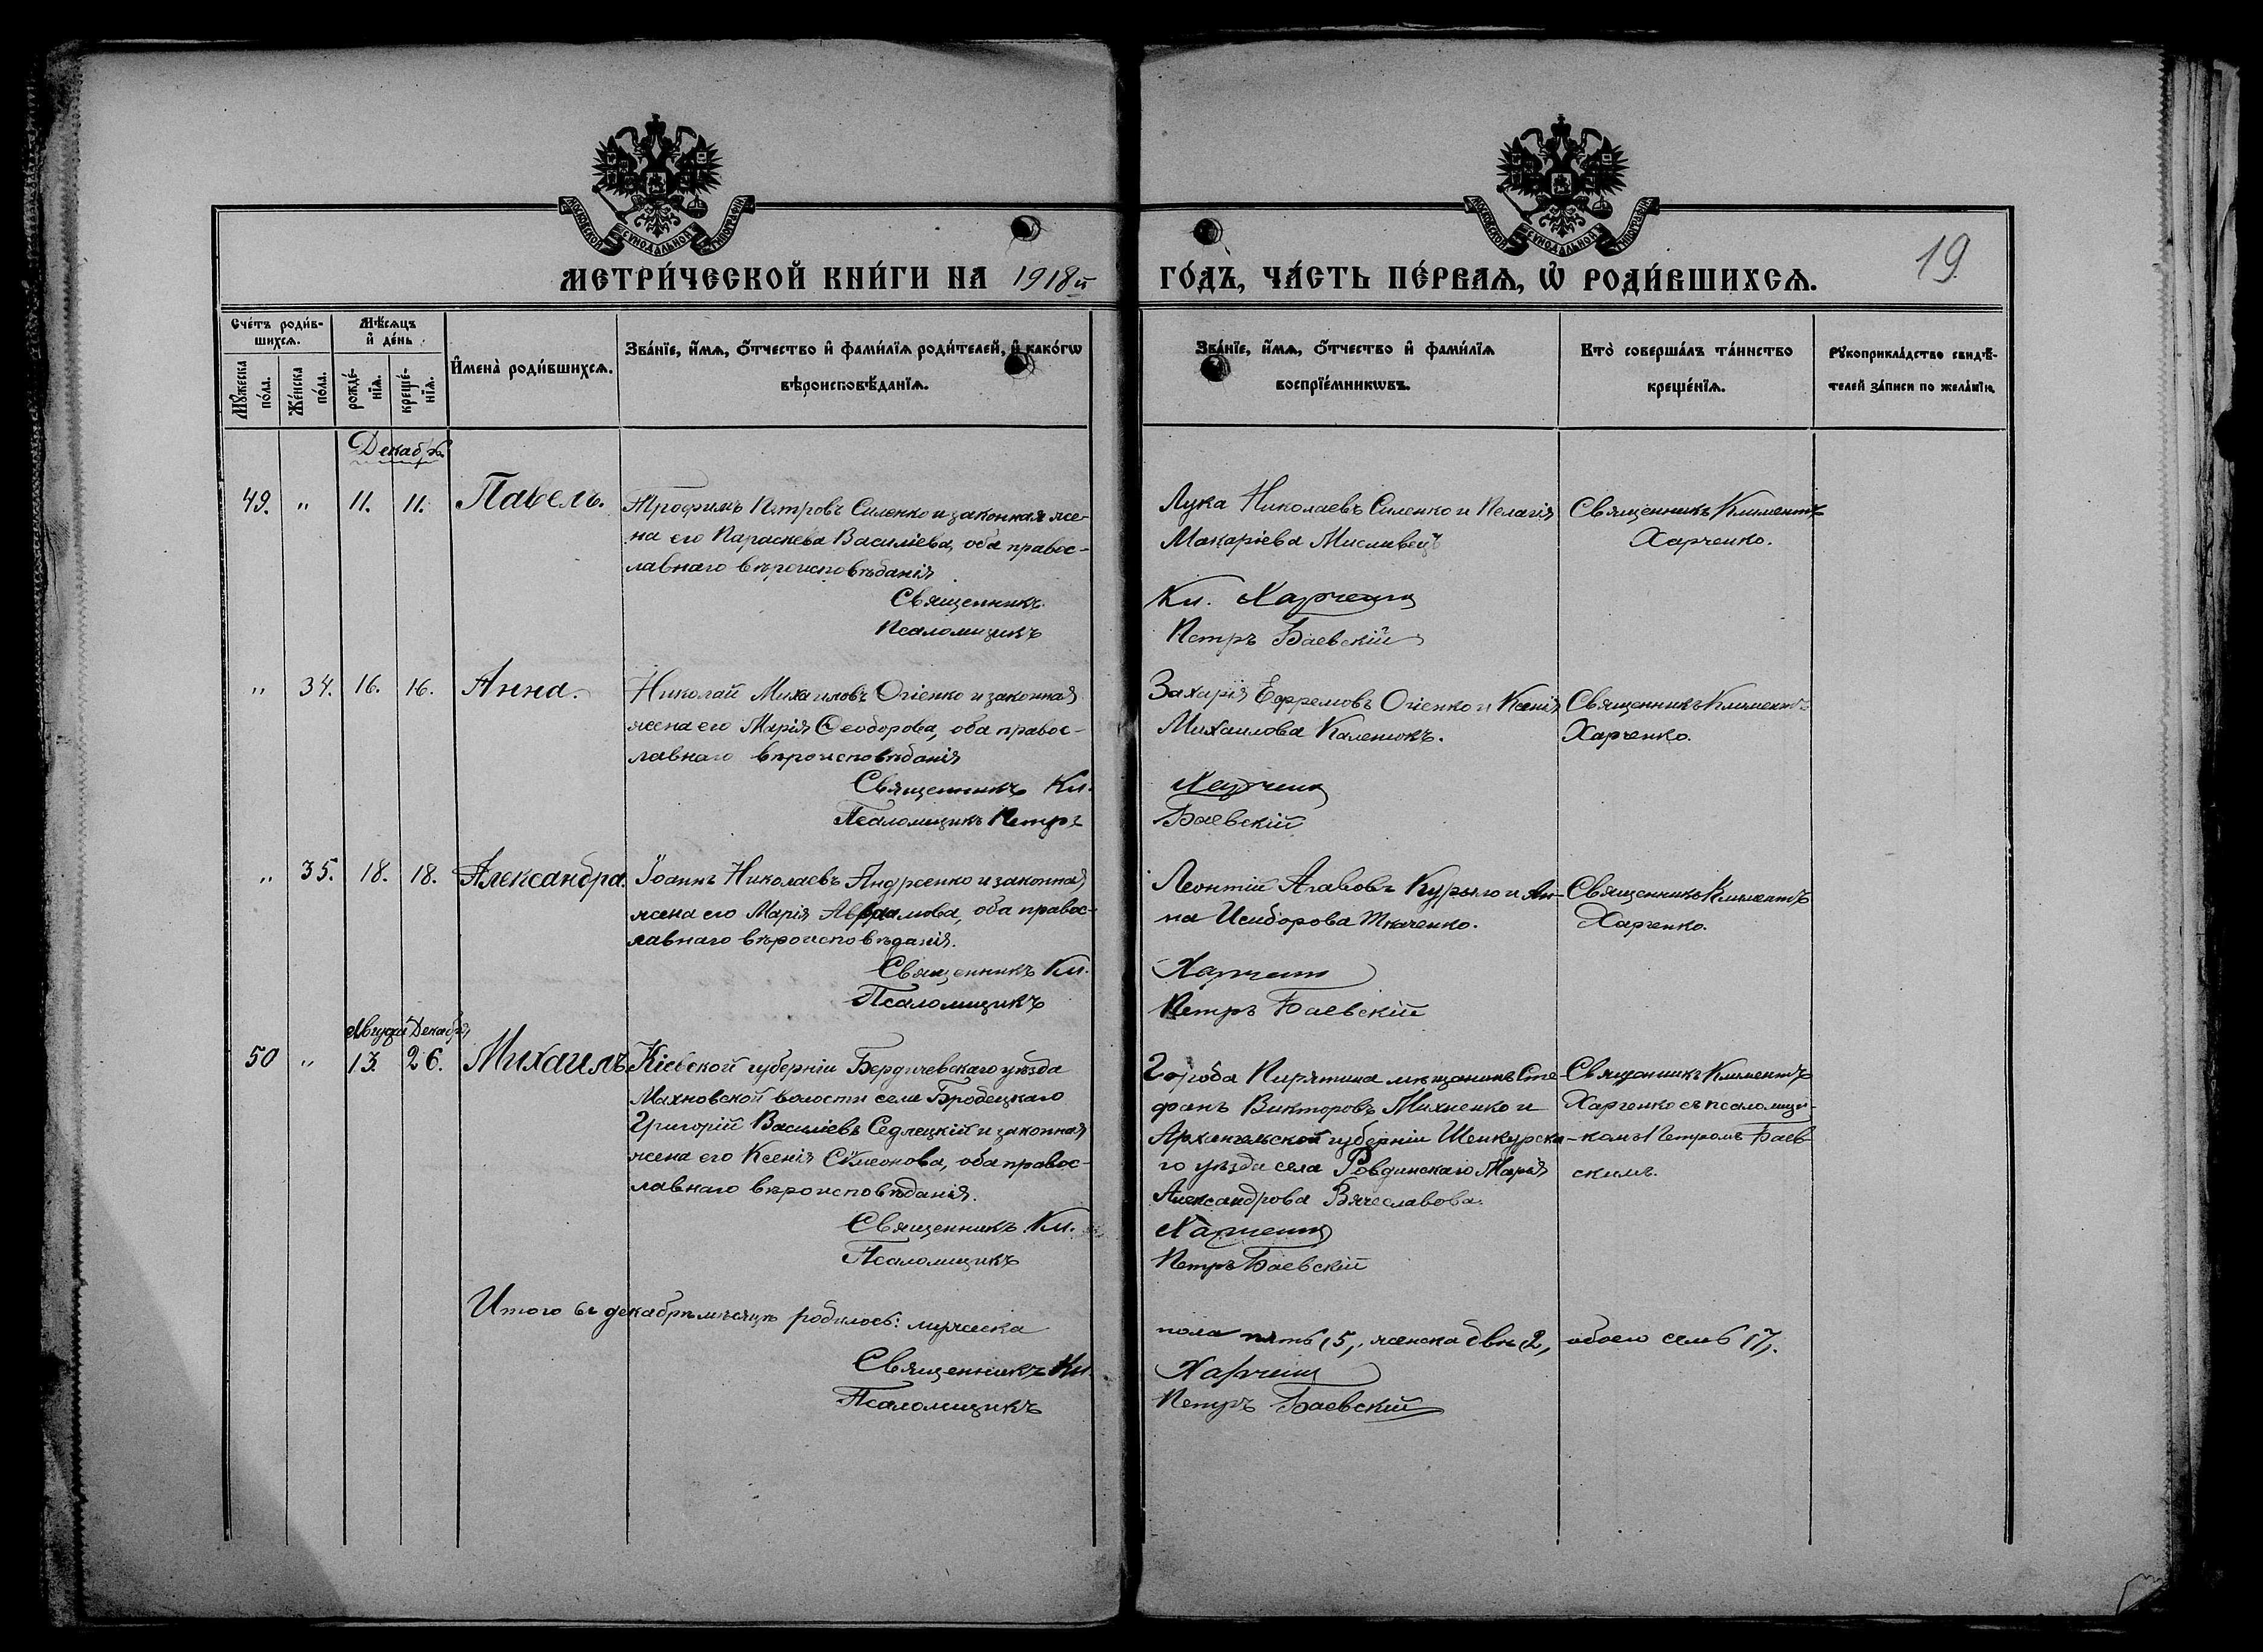 МОСКОВСКОЙ СѴНОДАЛЬНОЙ ТИПОГРАФІИ
МОСКОВСКОЙ СѴНОДАЛЬНОЙ ТИПОГРАФІИ
19.
МЕТРИ́ЧЕСКОЙ КНИ́ГИ НА 1918й ГО́ДЪ, ЧА́СТЬ ПЕ́РВАѦ, Ѡ҆ РОДИ́ВШИХСѦ.
Сче́тъ роди́в-
шихсѧ.
Мѣ́сѧцъ
и҆ де́нь
Мꙋ́жеска по́ла.
Же́нска по́ла.
рожде́-нїѧ.
креще́-нїѧ.
И҆мена̀ роди́вшихсѧ.
Зва́нїе, и҆́мѧ, ѻ҆́тчество и҆ фами́лїѧ роди́телей, и҆ како́гѡ
вѣроисповѣ́данїѧ.
Зва́нїе, и҆́мѧ, ѻ҆́тчество и҆ фами́лїѧ
воспрїе́мникѡвъ.
Кто̀ соверша́лъ та́инство
креще́нїѧ.
Рꙋкоприкла́дство свидѣ́-
телей за́писи по жела́нїю.
Декабрь
49. " 11. 11. Павелъ.
Трофимъ Петровъ Силенко и законная же-
на его Параскева Василіева, оба правос-
лавнаго вѣроисповѣданія
Священникъ
Псаломщикъ
Лука Николаевъ Силенко и Пелагія
Макаріева Мисливецъ
Кл. Харченко
Петръ Баевскій
Священникъ Климентъ
Харченко.
" 34. 16. 16. Анна.
Николай Михаиловъ Огіенко и законная
жена его Марія Ѳеодорова, оба правос-
лавнаго вѣроисповѣданія
Священникъ Кл.
Псаломщикъ Петръ
Захарія Ефремовъ Огіенко и Ксенія
Михаилова Каленюкъ.
Харченко
Баевскій
Священникъ Климентъ
Харченко.
" 35. 18. 18. Александра.
Іоаннъ Николаевъ Андреенко и законная
жена его Марія Авраамова, оба правос-
лавнаго вѣроисповѣданія.
Священникъ Кл.
Псаломщикъ
Леонтій Агавовъ Курыло и Ан-
на Исидорова Ткаченко.
Харченко
Петръ Баевскій
Священникъ Климентъ
Харченко.
Августа Декабря
50 " 13. 26. Михаилъ
Кіевской губерніи Бердичевскаго уѣзда
Махновской волости села Бродецкаго
Григорій Василіевъ Седлецкій и законная
жена его Ксенія Сѵмеонова, оба правос-
лавнаго вѣроисповѣданія.
Священникъ Кл.
Псаломщикъ
Города Пирятина мѣщанинъ Сте-
фанъ Викторовъ Михненко и
Архангельской губерніи Шенкурска-
го уѣзда села Ровдинскаго Марія
Александрова Вячеславова.
Харченко
Петръ Баевскій
Священникъ Климентъ
Харченко съ псаломщи-
комъ Петромъ Баев-
скимъ.
Итого въ декабрѣ мѣсяцѣ родилось: мужеска пола пять (5), женска двѣ (2), обоего семь (7).
Священникъ Кл.
Псаломщикъ
Харченко
Петръ Баевскій